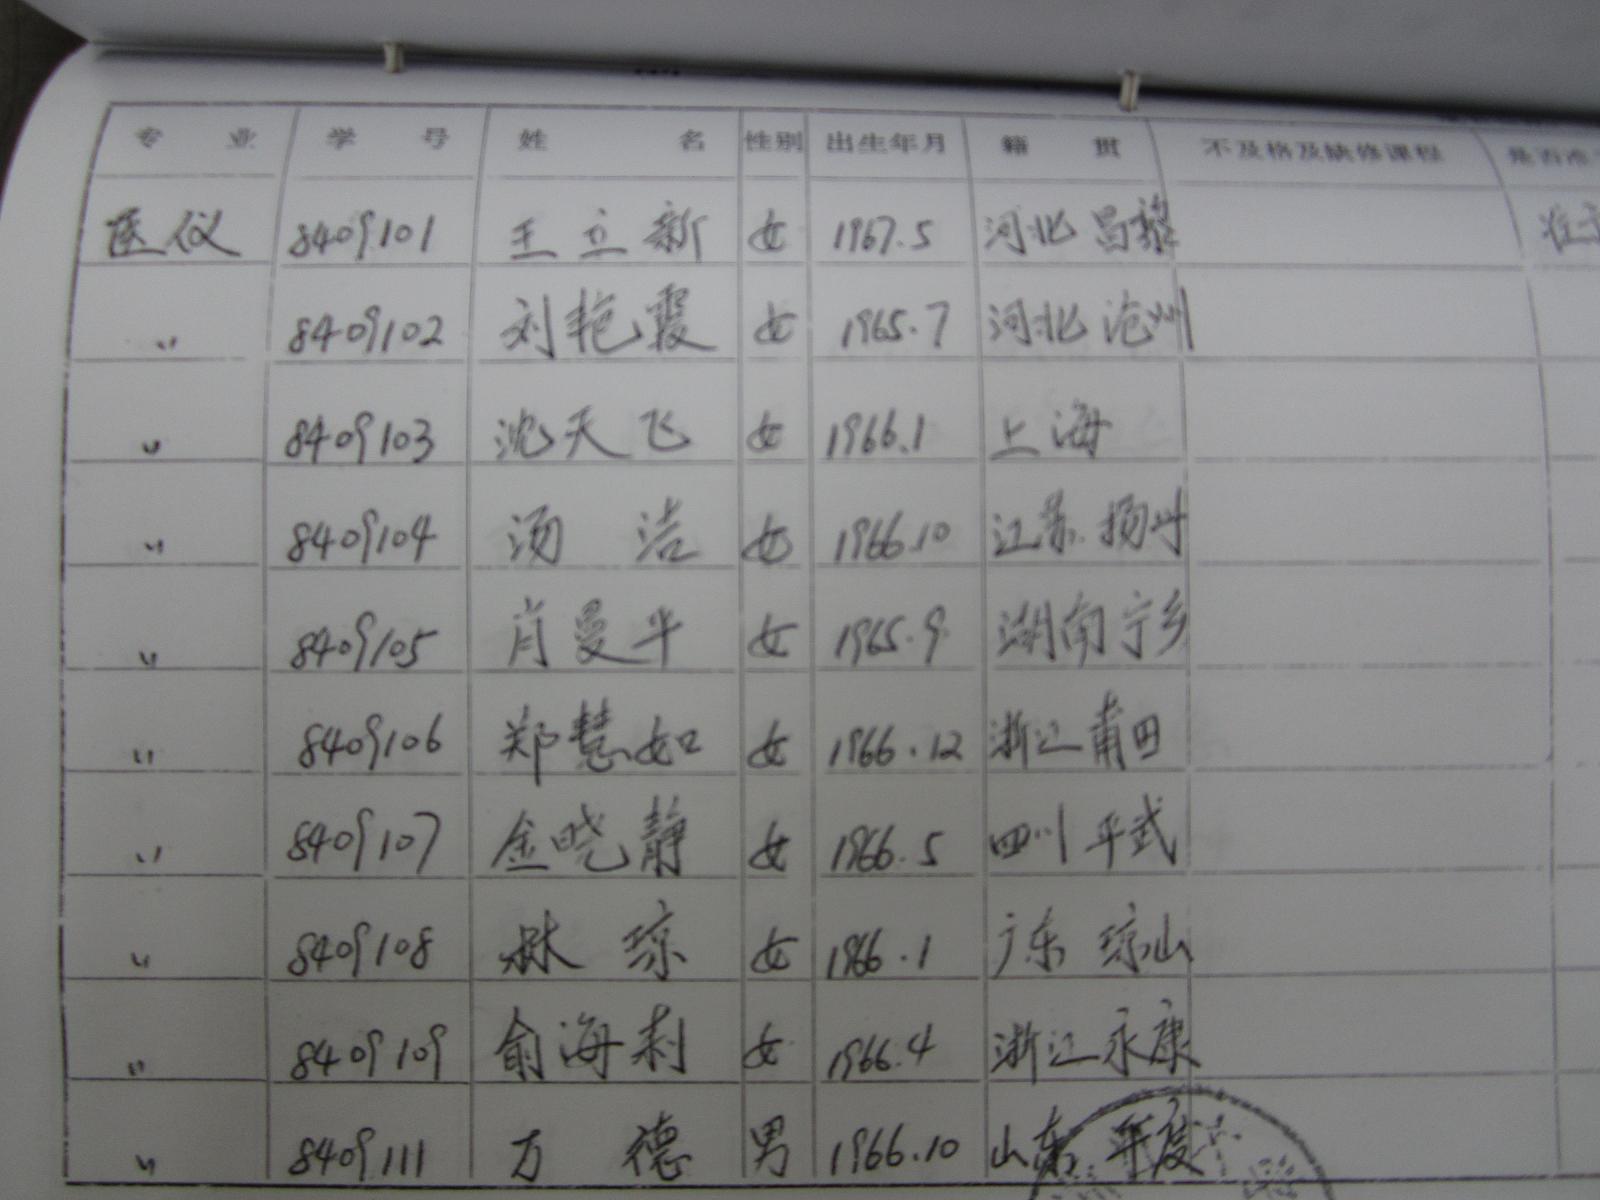 专 业 学 号 姓 名 性别 出生年月 籍 贯 不及格及缺修课程 是否准
医仪 8409101 王立新 女 1967.5 河北 昌黎 准
〃 8409102 刘艳霞 女 1965.7 河北 沧州
〃 8409103 沈天飞 女 1966.1 上海
〃 8409104 汤 洁 女 1966.10 江苏 扬州
〃 8409105 肖曼平 女 1965.9 湖南宁乡
〃 8409106 郑慧如 女 1966.12 浙江莆田
〃 8409107 金晓静 女 1966.5 四川 平武
〃 8409108 林 琼 女 1966.1 广东 琼山
〃 8409109 俞海莉 女 1966.4 浙江永康
〃 8409111 万 德 男 1966.10 山东 平度